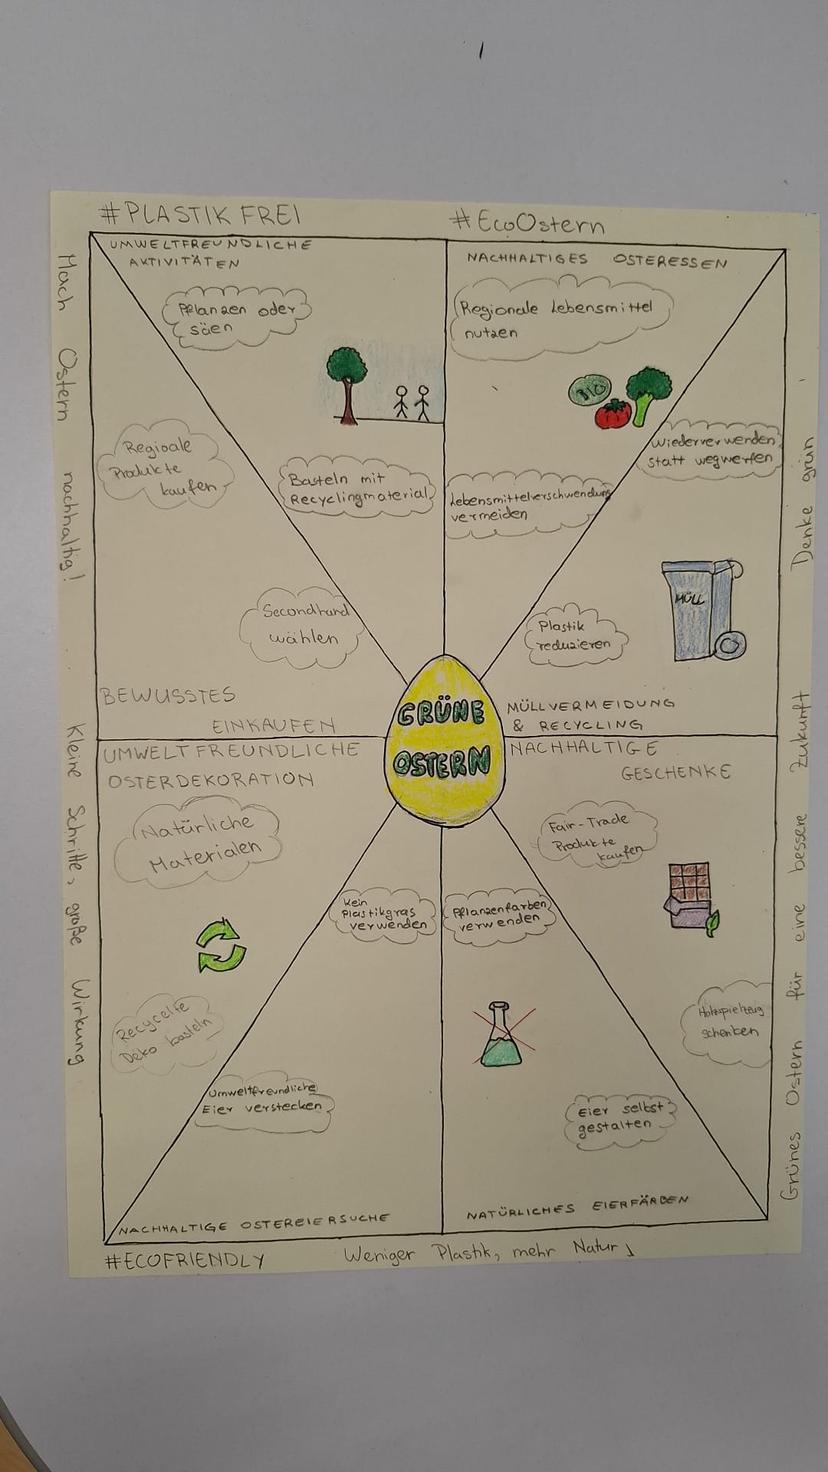 #PLASTIK FREI
#EcoOstern
UMWELTFREUNDLICHE
AKTIVITÄTEN
Pflanzen oder
säen
Basteln mit
Recyclingmaterial
NACHHALTIGES OSTERESSEN
Regionale Lebensmittel
nutzen
BIO
Lebensmittelverschwendung
vermeiden
Regioale
Produkte
kaufen
Secondhand
wählen
BEWUSSTES
EINKAUFEN
Wiederverwenden
statt wegwerfen
MÜLL
Plastik
reduzieren
MÜLLVERMEIDUNG
& RECYCLING
GRÜNE
OSTERN
UMWELTFREUNDLICHE
OSTERDEKORATION
Natürliche
Materialen
Recycelte
Deko basteln
NACHHALTIGE
GESCHENKE
Fair-Trade
Produkte
kaufen
Holzspielzeug
schenken
Kein
Plastikgras
verwenden
Umweltfreundliche
Eier verstecken
NACHHALTIGE OSTEREIERSUCHE
Pflanzenfarben
verwenden
Eier selbst
gestalten
NATÜRLICHES EIERFÄRBEN
#ECOFRIENDLY
Weniger Plastik, mehr Natur!
Mach Ostern nachhaltig!
Kleine Schritte, große Wirkung
Denke grün
Grünes Ostern für eine bessere Zukunft